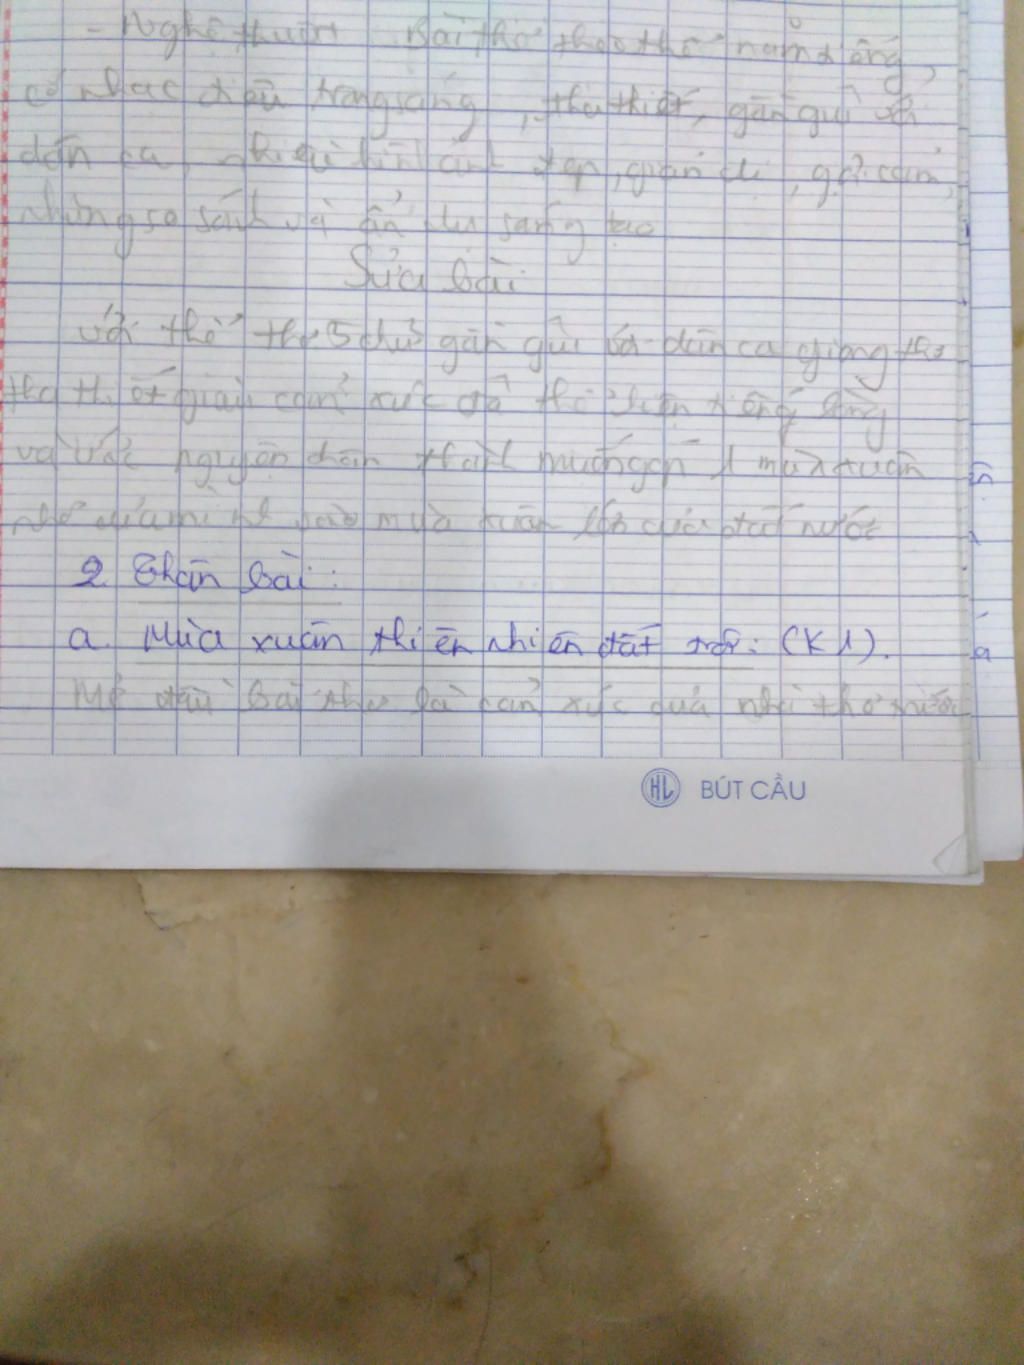 - Nghệ thuật Bài thơ theo thể năm tiếng,
có nhạc điệu trong sáng, tha thiết, gần gũi với
dân ca, nhiều hình ảnh đẹp, giản dị, gợi cảm,
những so sánh và ẩn dụ sáng tạo
Sửa bài
Với thể thơ 5 chữ gần gũi với dân ca giọng thơ
tha thiết giàu cảm xúc đã thể hiện tiếng lòng
và ước nguyện chân thành muốn góp 1 mùa xuân
nhỏ của mình vào mùa xuân lớn của đất nước
2 Thân bài:
a. Mùa xuân thiên nhiên đất trời: (K1).
Mở đầu bài thơ là cảm xúc của nhà thơ trước
HL BÚT CẦU